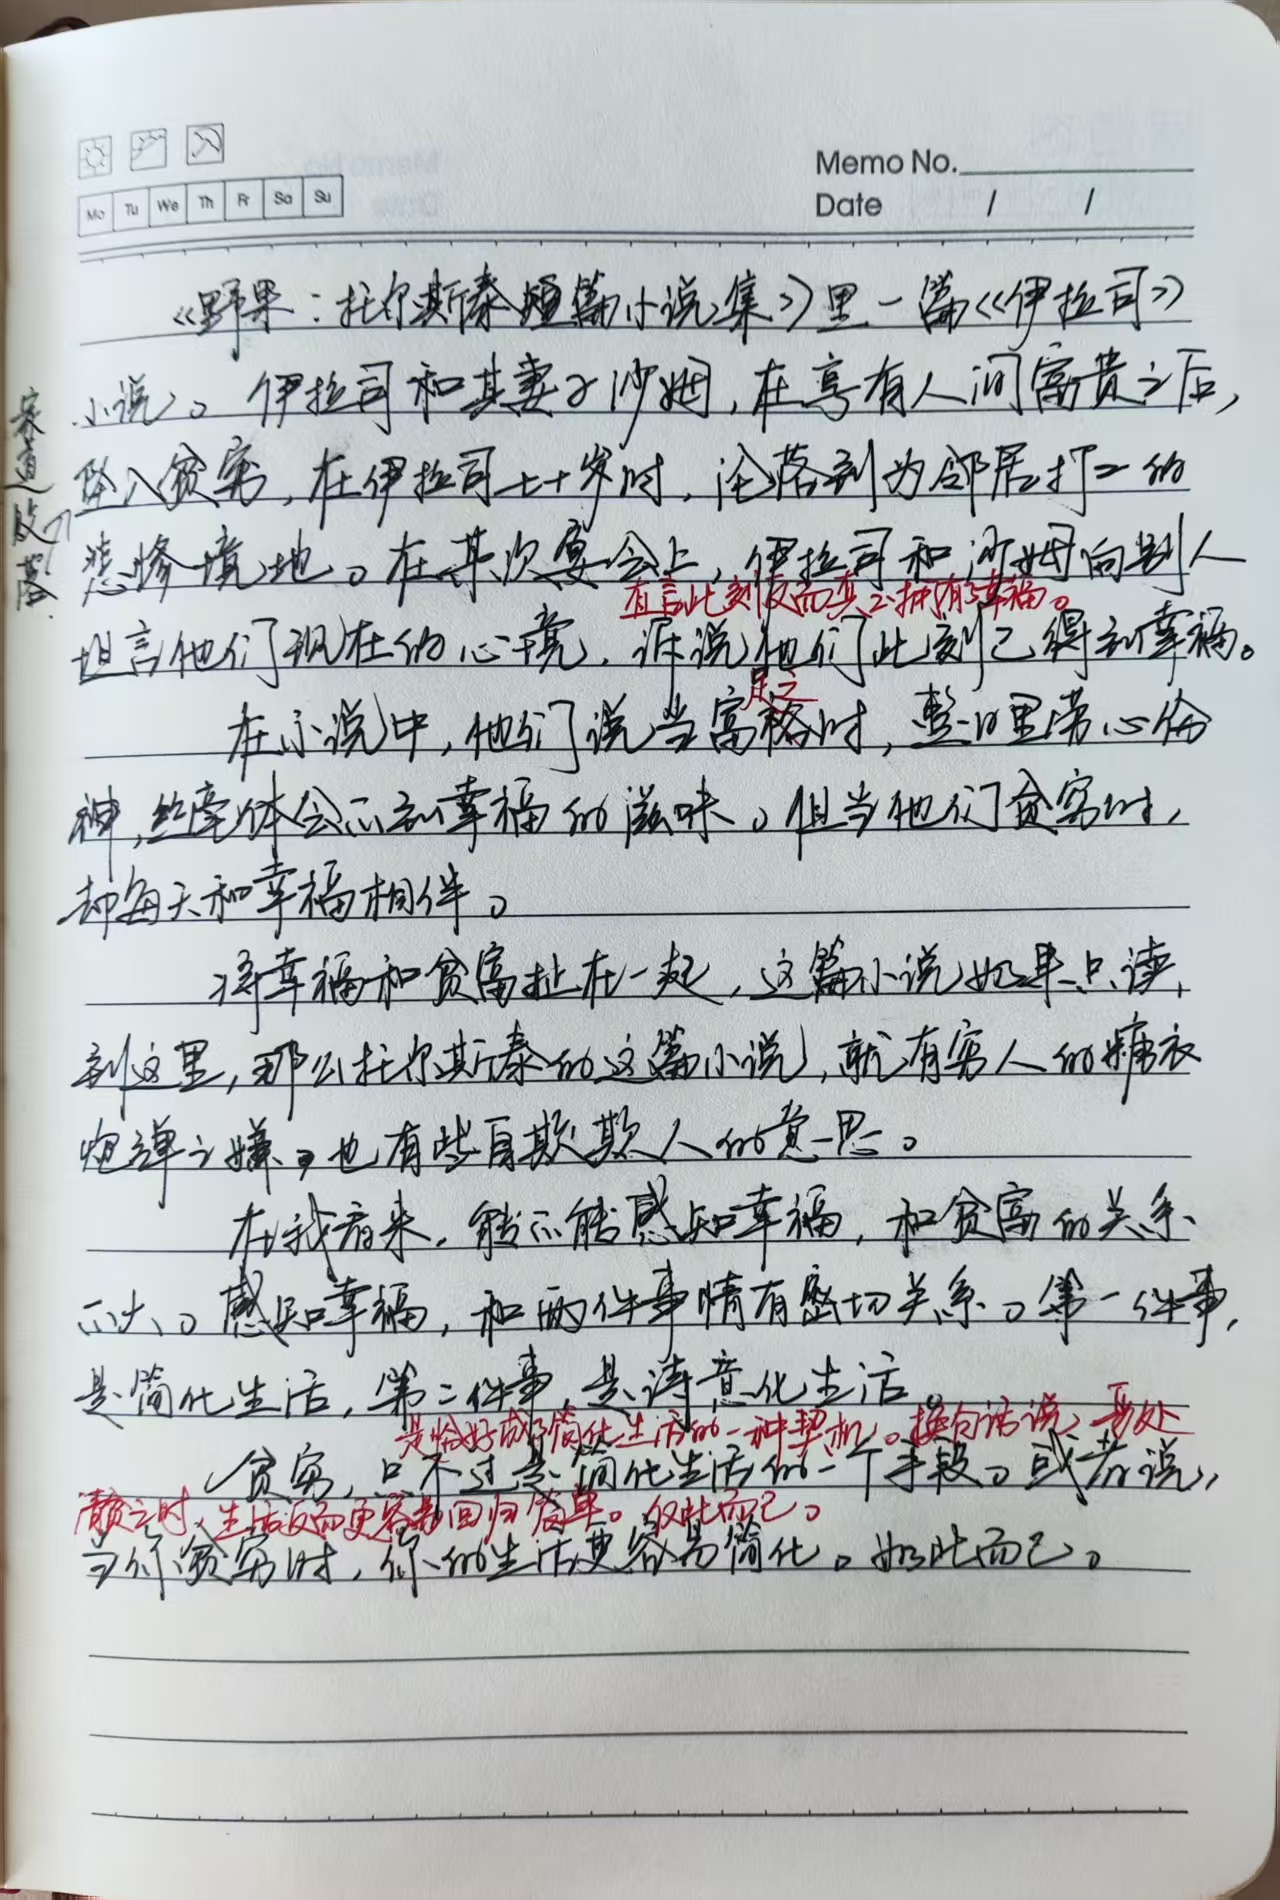 Memo No.
Mo Tu We Th Fr Sa Su
Date / /
《野果：托尔斯泰短篇小说集》里一篇《伊拉司》
小说。伊拉司和其妻子沙姆，在享有人间富贵之后，
家道败落
坠入贫穷，在伊拉司七十岁时，沦落到为邻居打工的
悲惨境地。在某次宴会上，伊拉司和沙姆向别人
直言此刻反而真正拥有了幸福。
坦言他们现在的心境，诉说他们此刻已得到幸福。
足之
在小说中，他们说当富裕时，整日里劳心伤
神，丝毫体会不到幸福的滋味。但当他们贫穷时，
却每天和幸福相伴。
将幸福和贫富扯在一起，这篇小说如果只读
到这里，那么托尔斯泰的这篇小说，就有穷人的糖衣
炮弹之嫌，也有些自欺欺人的意思。
在我看来，能不能感知幸福，和贫富的关系
不大。感知幸福，和两件事情有密切关系。第一件事，
是简化生活，第二件事，是诗意化生活。
是恰好成了简化生活的一种契机。换句话说，身处
贫穷，只不过是简化生活的一个手段。或者说，
清贫之时，生活反而更容易回归简单。仅此而已。
当你贫穷时，你的生活更容易简化。如此而已。